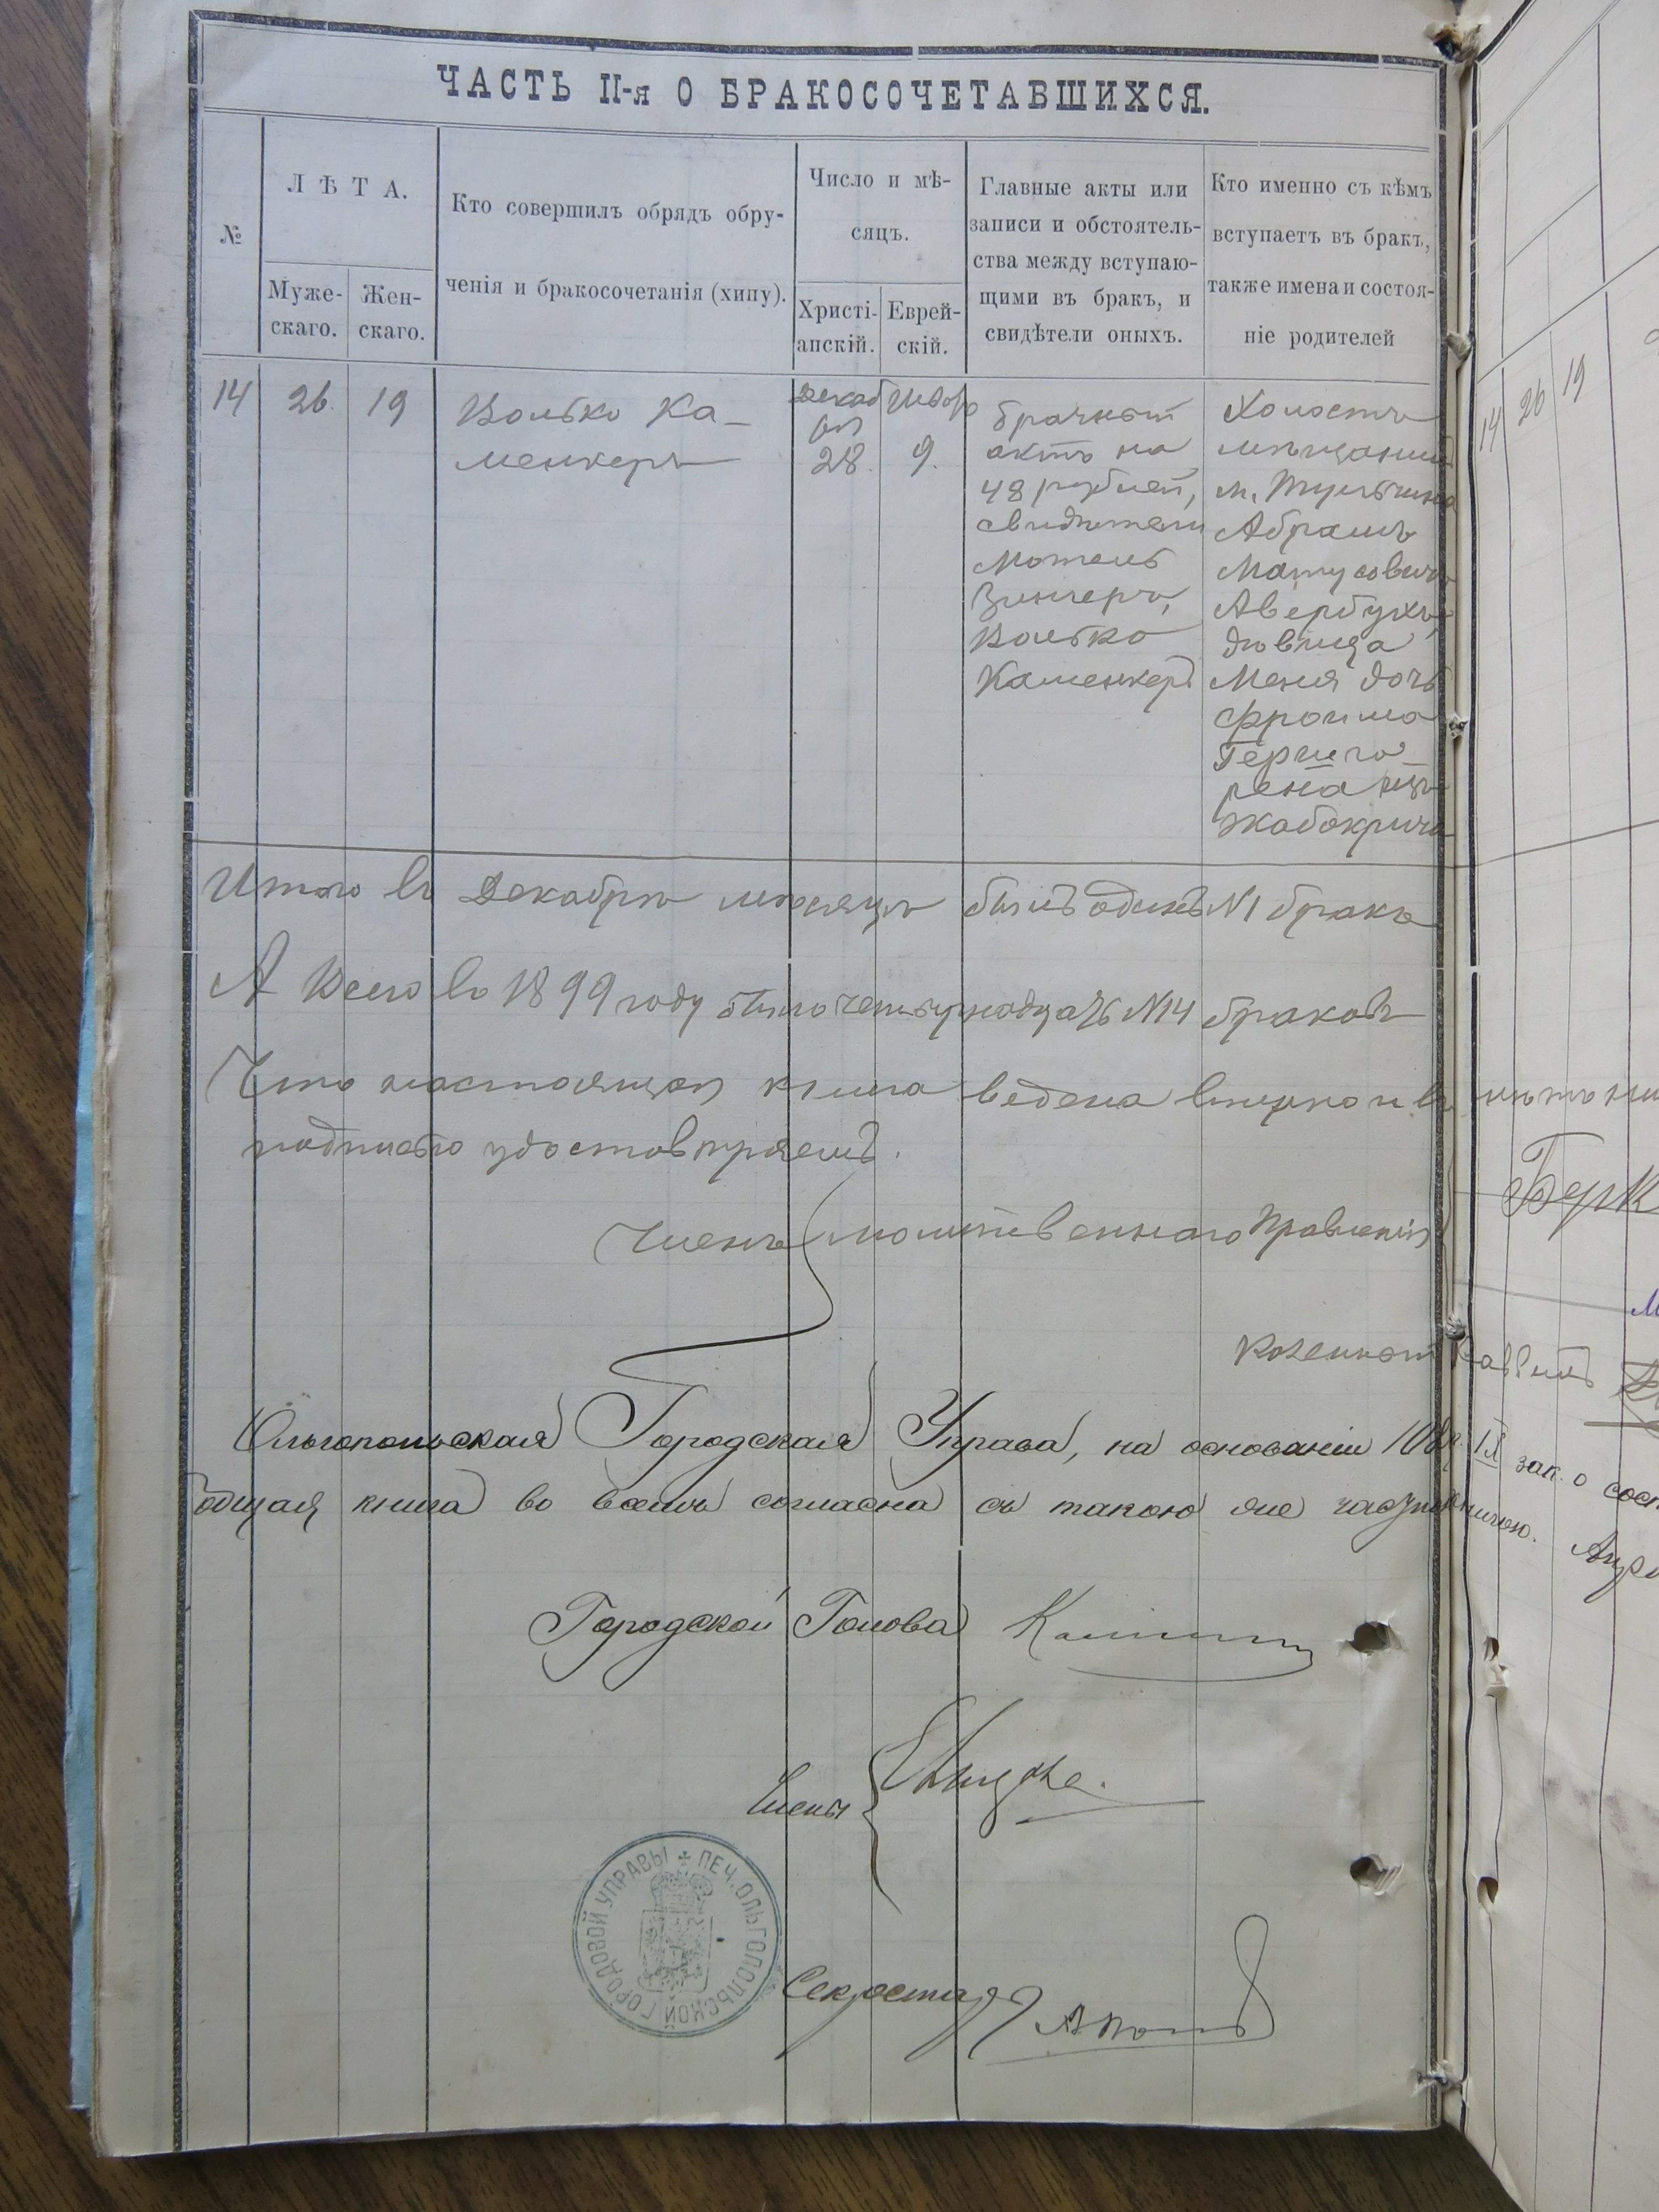 ЧАСТЬ II-я О БРАКОСОЧЕТАВШИХСЯ.
№
ЛѢТА.
Муже-
скаго.
Жен-
скаго.
Кто совершилъ обрядъ обру-
ченія и бракосочетанія (хипу).
Число и мѣ-
сяцъ.
Христі-
анскій.
Еврей-
скій.
Главные акты или
записи и обстоятель-
ства между вступаю-
щими въ бракъ, и
свидѣтели оныхъ.
Кто именно съ кѣмъ
вступаетъ въ бракъ,
также имена и состоя-
ніе родителей
14
26
19
Волько Ка-
менкеръ
Декаб
ря
28.
9.
брачный
актъ на
48 рублей,
свидѣтели
Мотель
Зингеръ,
Волько
Каменкеръ
Холостъ
мѣщанинъ
м. Тульчина
Абрамъ
Матусовичъ
Авербухъ,
дѣвица
Меня дочь
Фроима
жабокрича
Итого въ Декабрѣ мѣсяцѣ былъ одинъ №1 бракъ
А Всего въ 1899 году было четырнадцать №14 браковъ
Что настоящая книга ведена вѣрно и въ
подписью удостовѣряемъ.
Члены молитвеннаго Правленія
Ольгопольская Городская Управа, на основаніи IX зак. о сост
книга во всемъ согласна съ такою же
Городской Голова
Члены
Секретарь
ПЕЧ. ОЛЬГОПОЛЬСКОЙ ГОРОДОВОЙ УПРАВЫ
14
26
19
Берк